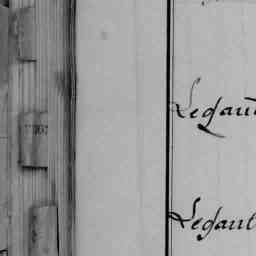 Legaut
Legaut